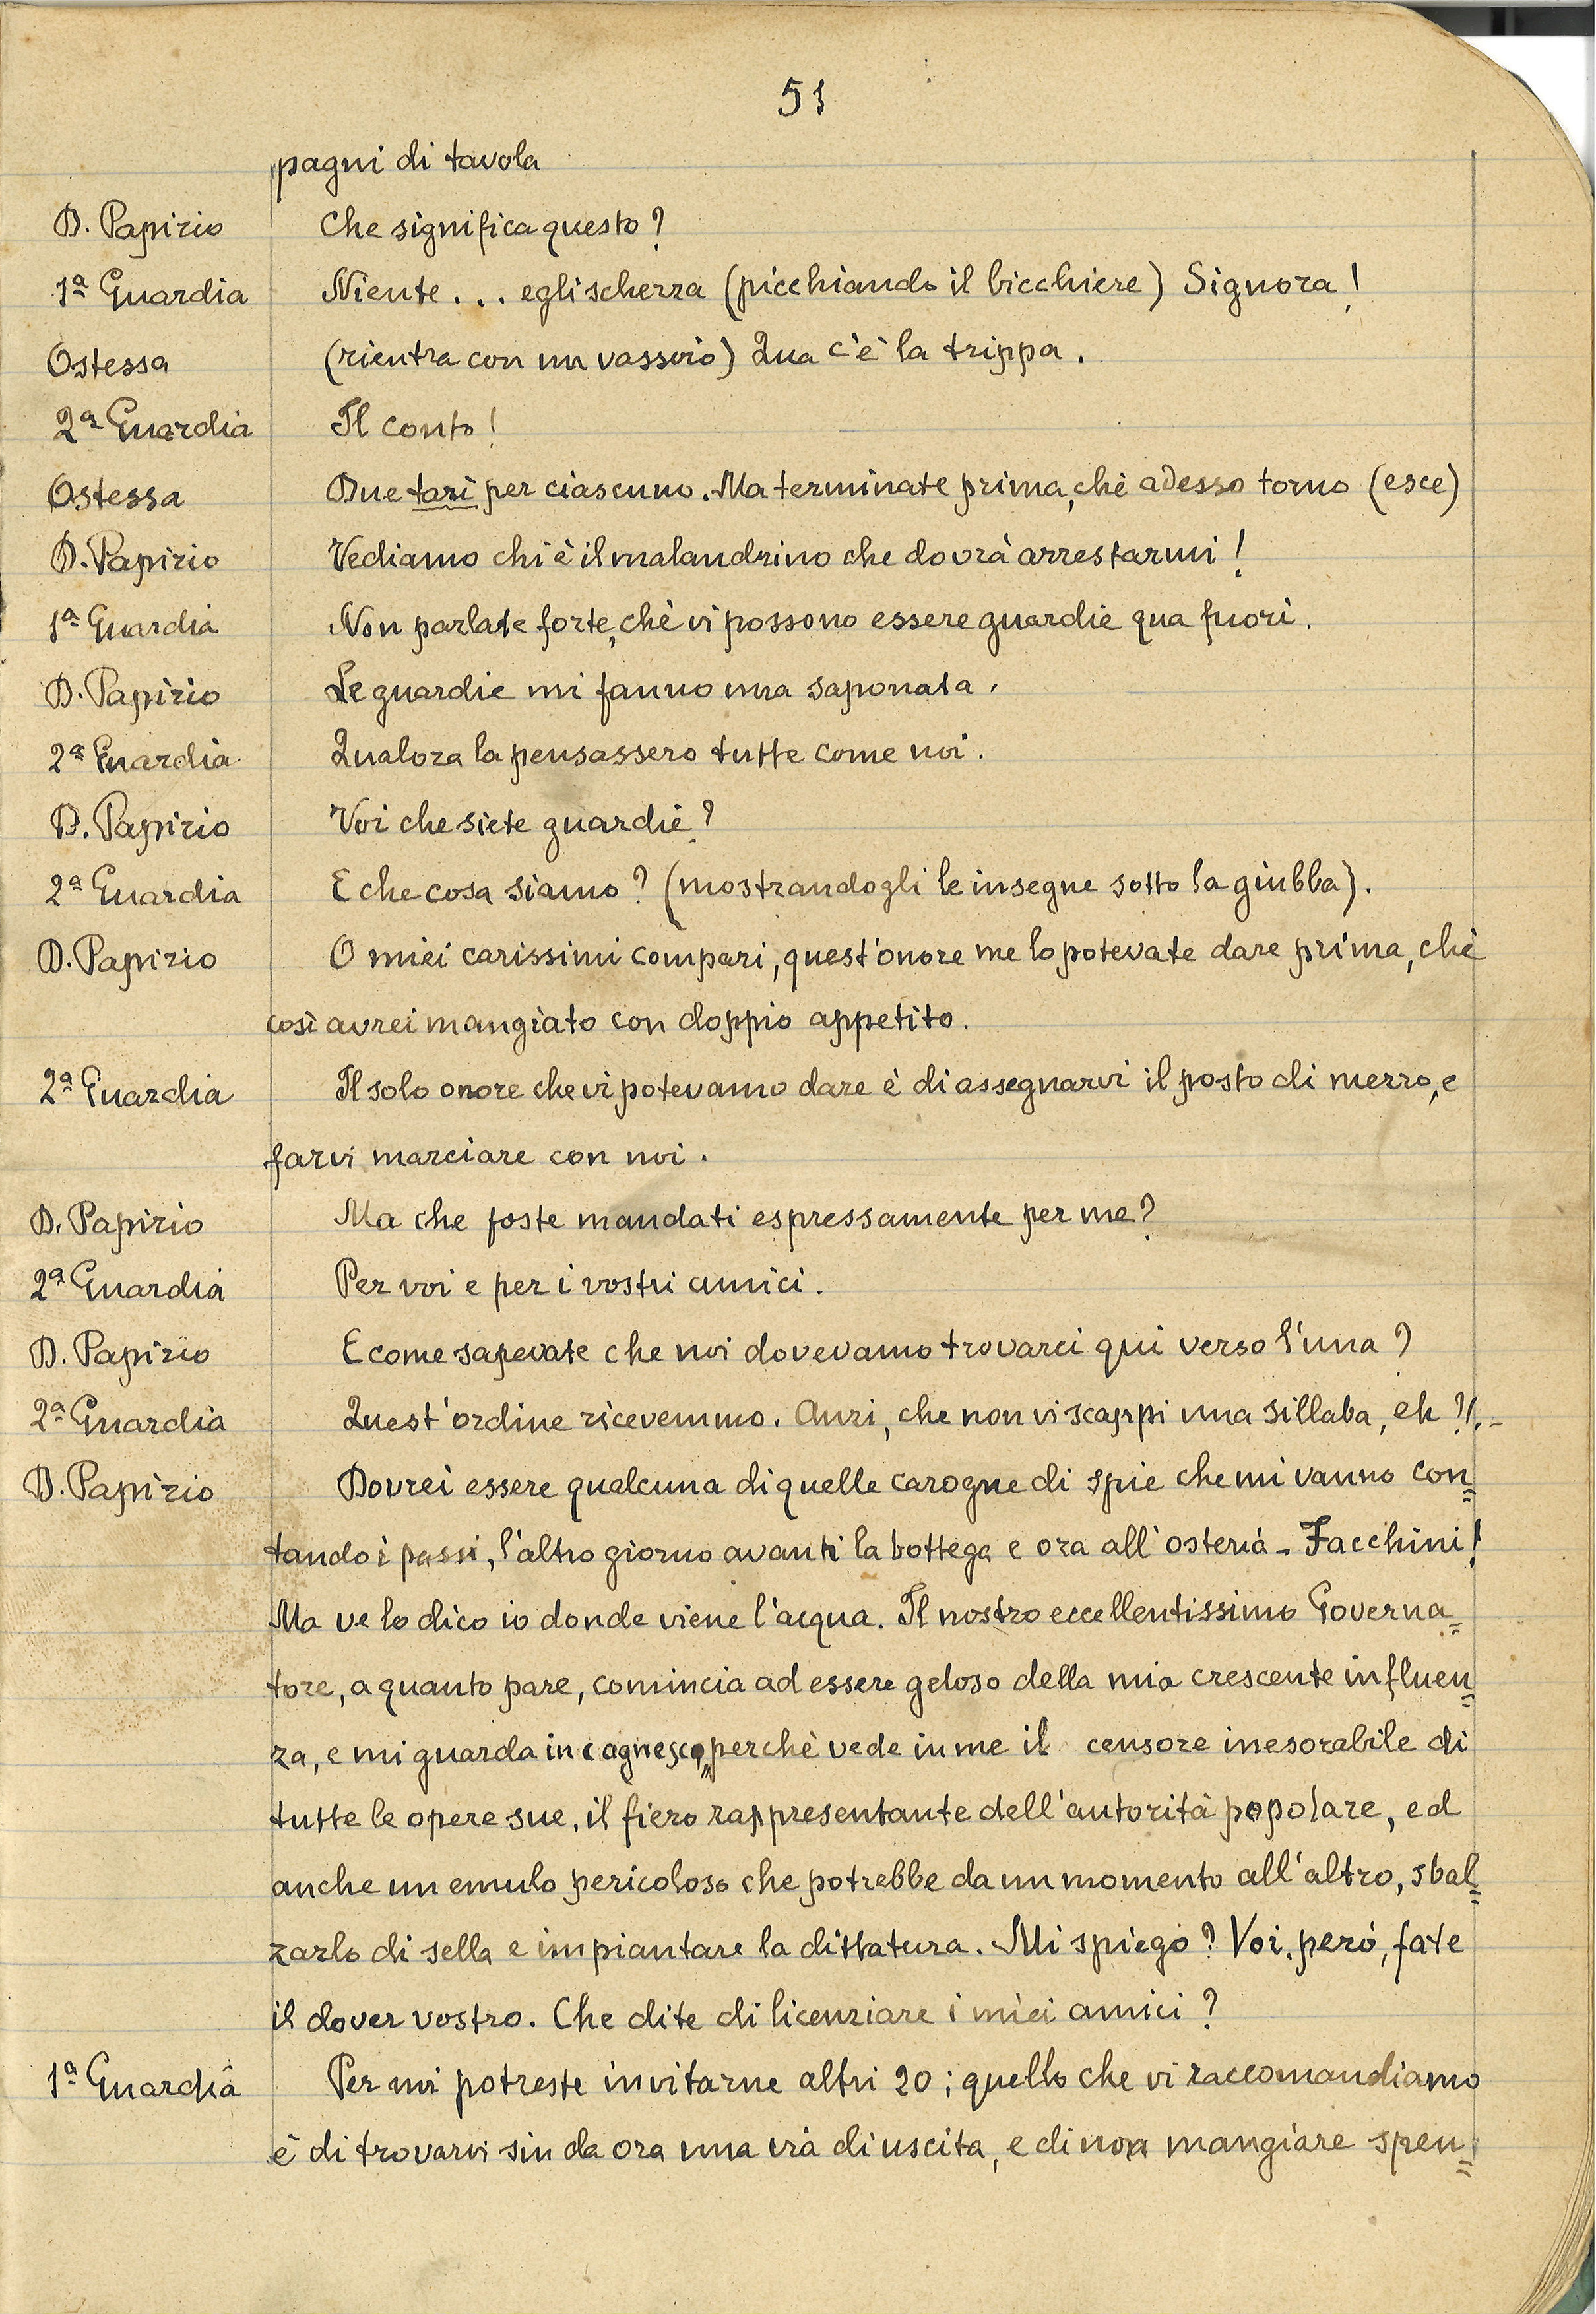 51
pagni di tavola
D. Papirio Che significa questo?
1ª Guardia Niente... egli scherza (picchiando il bicchiere) Signora!
Ostessa (rientra con un vassoio) Qua c'è la trippa.
2ª Guardia Il conto!
Ostessa Due tarì per ciascuno. Ma terminate prima, chè adesso torno (esce)
D. Papirio Vediamo chi è il malandrino che dovrà arrestarmi!
1ª Guardia Non parlate forte, chè vi possono essere guardie qua fuori.
D. Papirio Le guardie mi fanno una saponata.
2ª Guardia Qualora la pensassero tutte come noi.
D. Papirio Voi che siete guardie?
2ª Guardia E che cosa siamo? (mostrandogli le insegne sotto la giubba).
D. Papirio O miei carissimi compari, quest'onore me lo potevate dare prima, chè
così avrei mangiato con doppio appetito.
2ª Guardia Il solo onore che vi potevamo dare è di assegnarvi il posto di mezzo, e
farvi marciare con noi.
D. Papirio Ma che foste mandati espressamente per me?
2ª Guardia Per voi e per i vostri amici.
D. Papirio E come sapevate che noi dovevamo trovarci qui verso l'una?
2ª Guardia Quest'ordine ricevemmo. Anzi, che non vi scappi una sillaba, eh?!.-
D. Papirio Dovrei essere qualcuna di quelle carogne di spie che mi vanno con=
tando i passi, l'altro giorno avanti la bottega e ora all'osteria - Facchini!
Ma ve lo dico io donde viene l'acqua. Il nostro eccellentissimo Governa=
tore, a quanto pare, comincia ad essere geloso della mia crescente influen=
za, e mi guarda in cagnesco, perchè vede in me il censore inesorabile di
tutte le opere sue, il fiero rappresentante dell'autorità popolare, ed
anche un emulo pericoloso che potrebbe da un momento all'altro, sbal=
zarlo di sella e impiantare la dittatura. Mi spiego? Voi, però, fate
il dover vostro. Che dite di licenziare i miei amici?
1ª Guardia Per noi potreste invitarne altri 20; quello che vi raccomandiamo
è di trovarvi sin da ora una via di uscita, e di non mangiare spen=